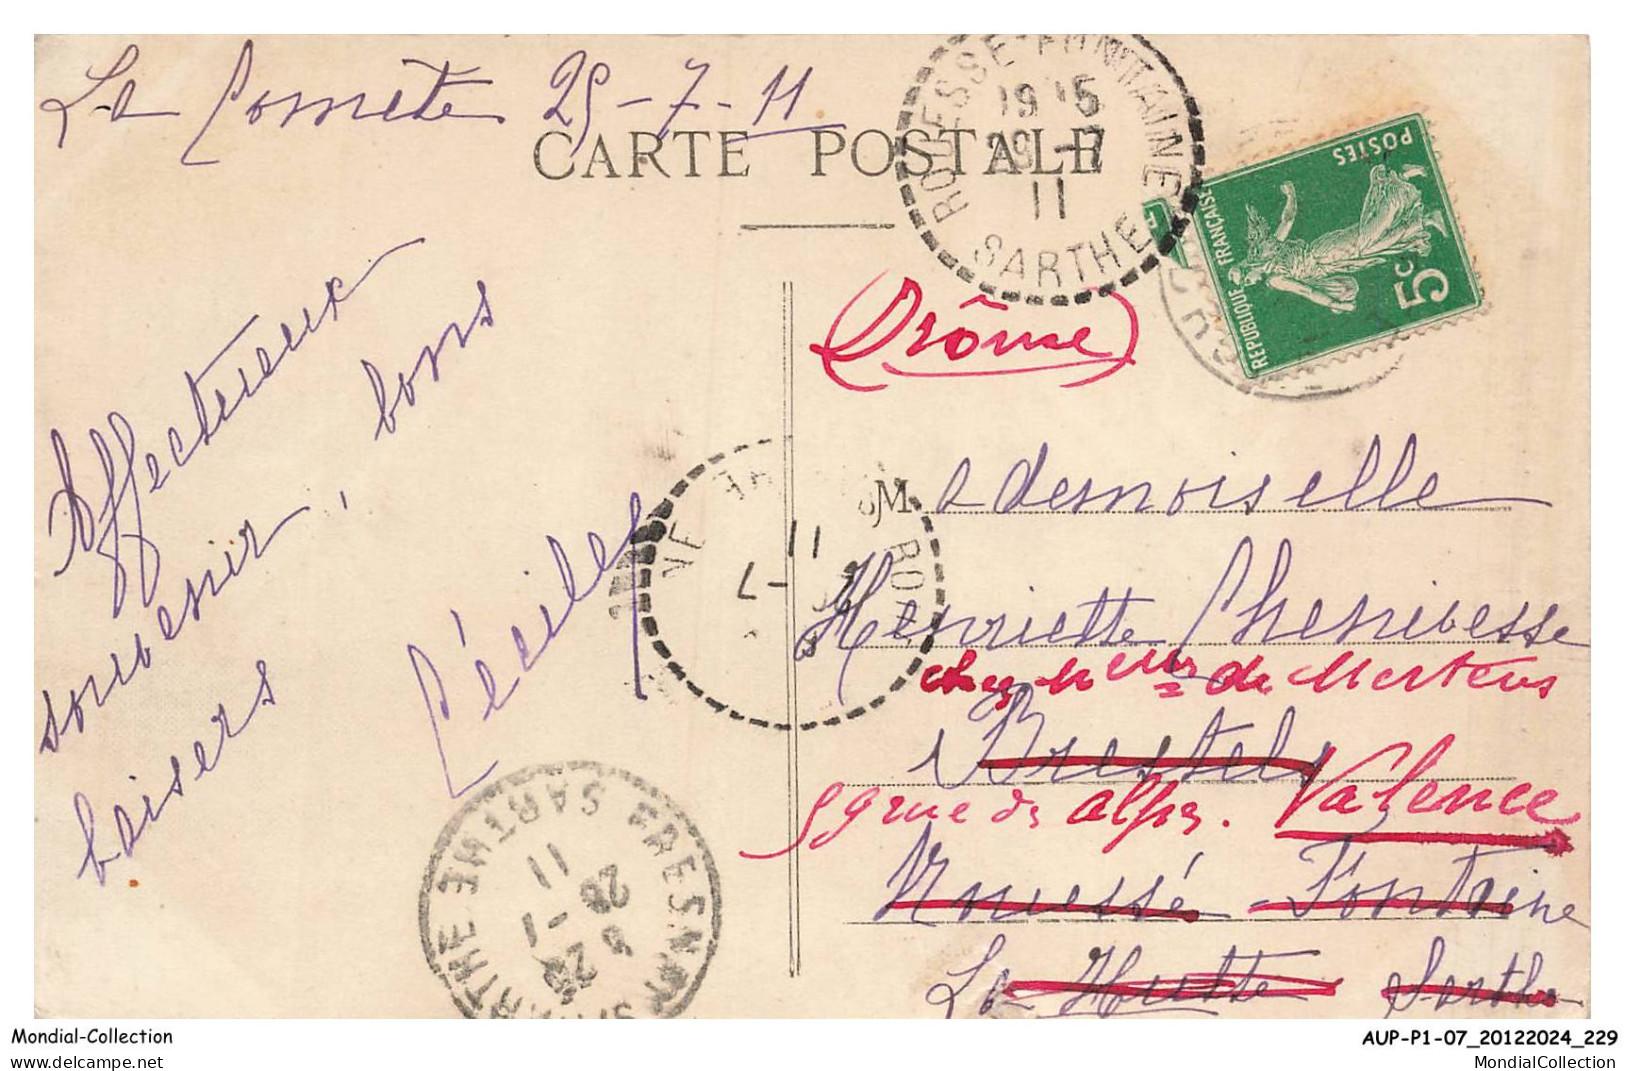 La Comète 25-7-11
CARTE POSTALE
ROUESSE-FONTAINE
19 15
28 -7
11
SARTHE
POSTES
REPUBLIQUE FRANÇAISE
5c
(Drôme)
Affectueux
souvenir, bons
baisers
Cécile
Mademoiselle
Henriette Chenibesse
chez Mme de Mertens
à Brestels
59 rue des Alpes. Valence
Rouessé-Fontaine
La Hutte Sarthe
11
-7
FRESNAY
SARTHE
11
28
Mondial-Collection
delcampe.net
AUP-P1-07_20122024_229
MondialCollection